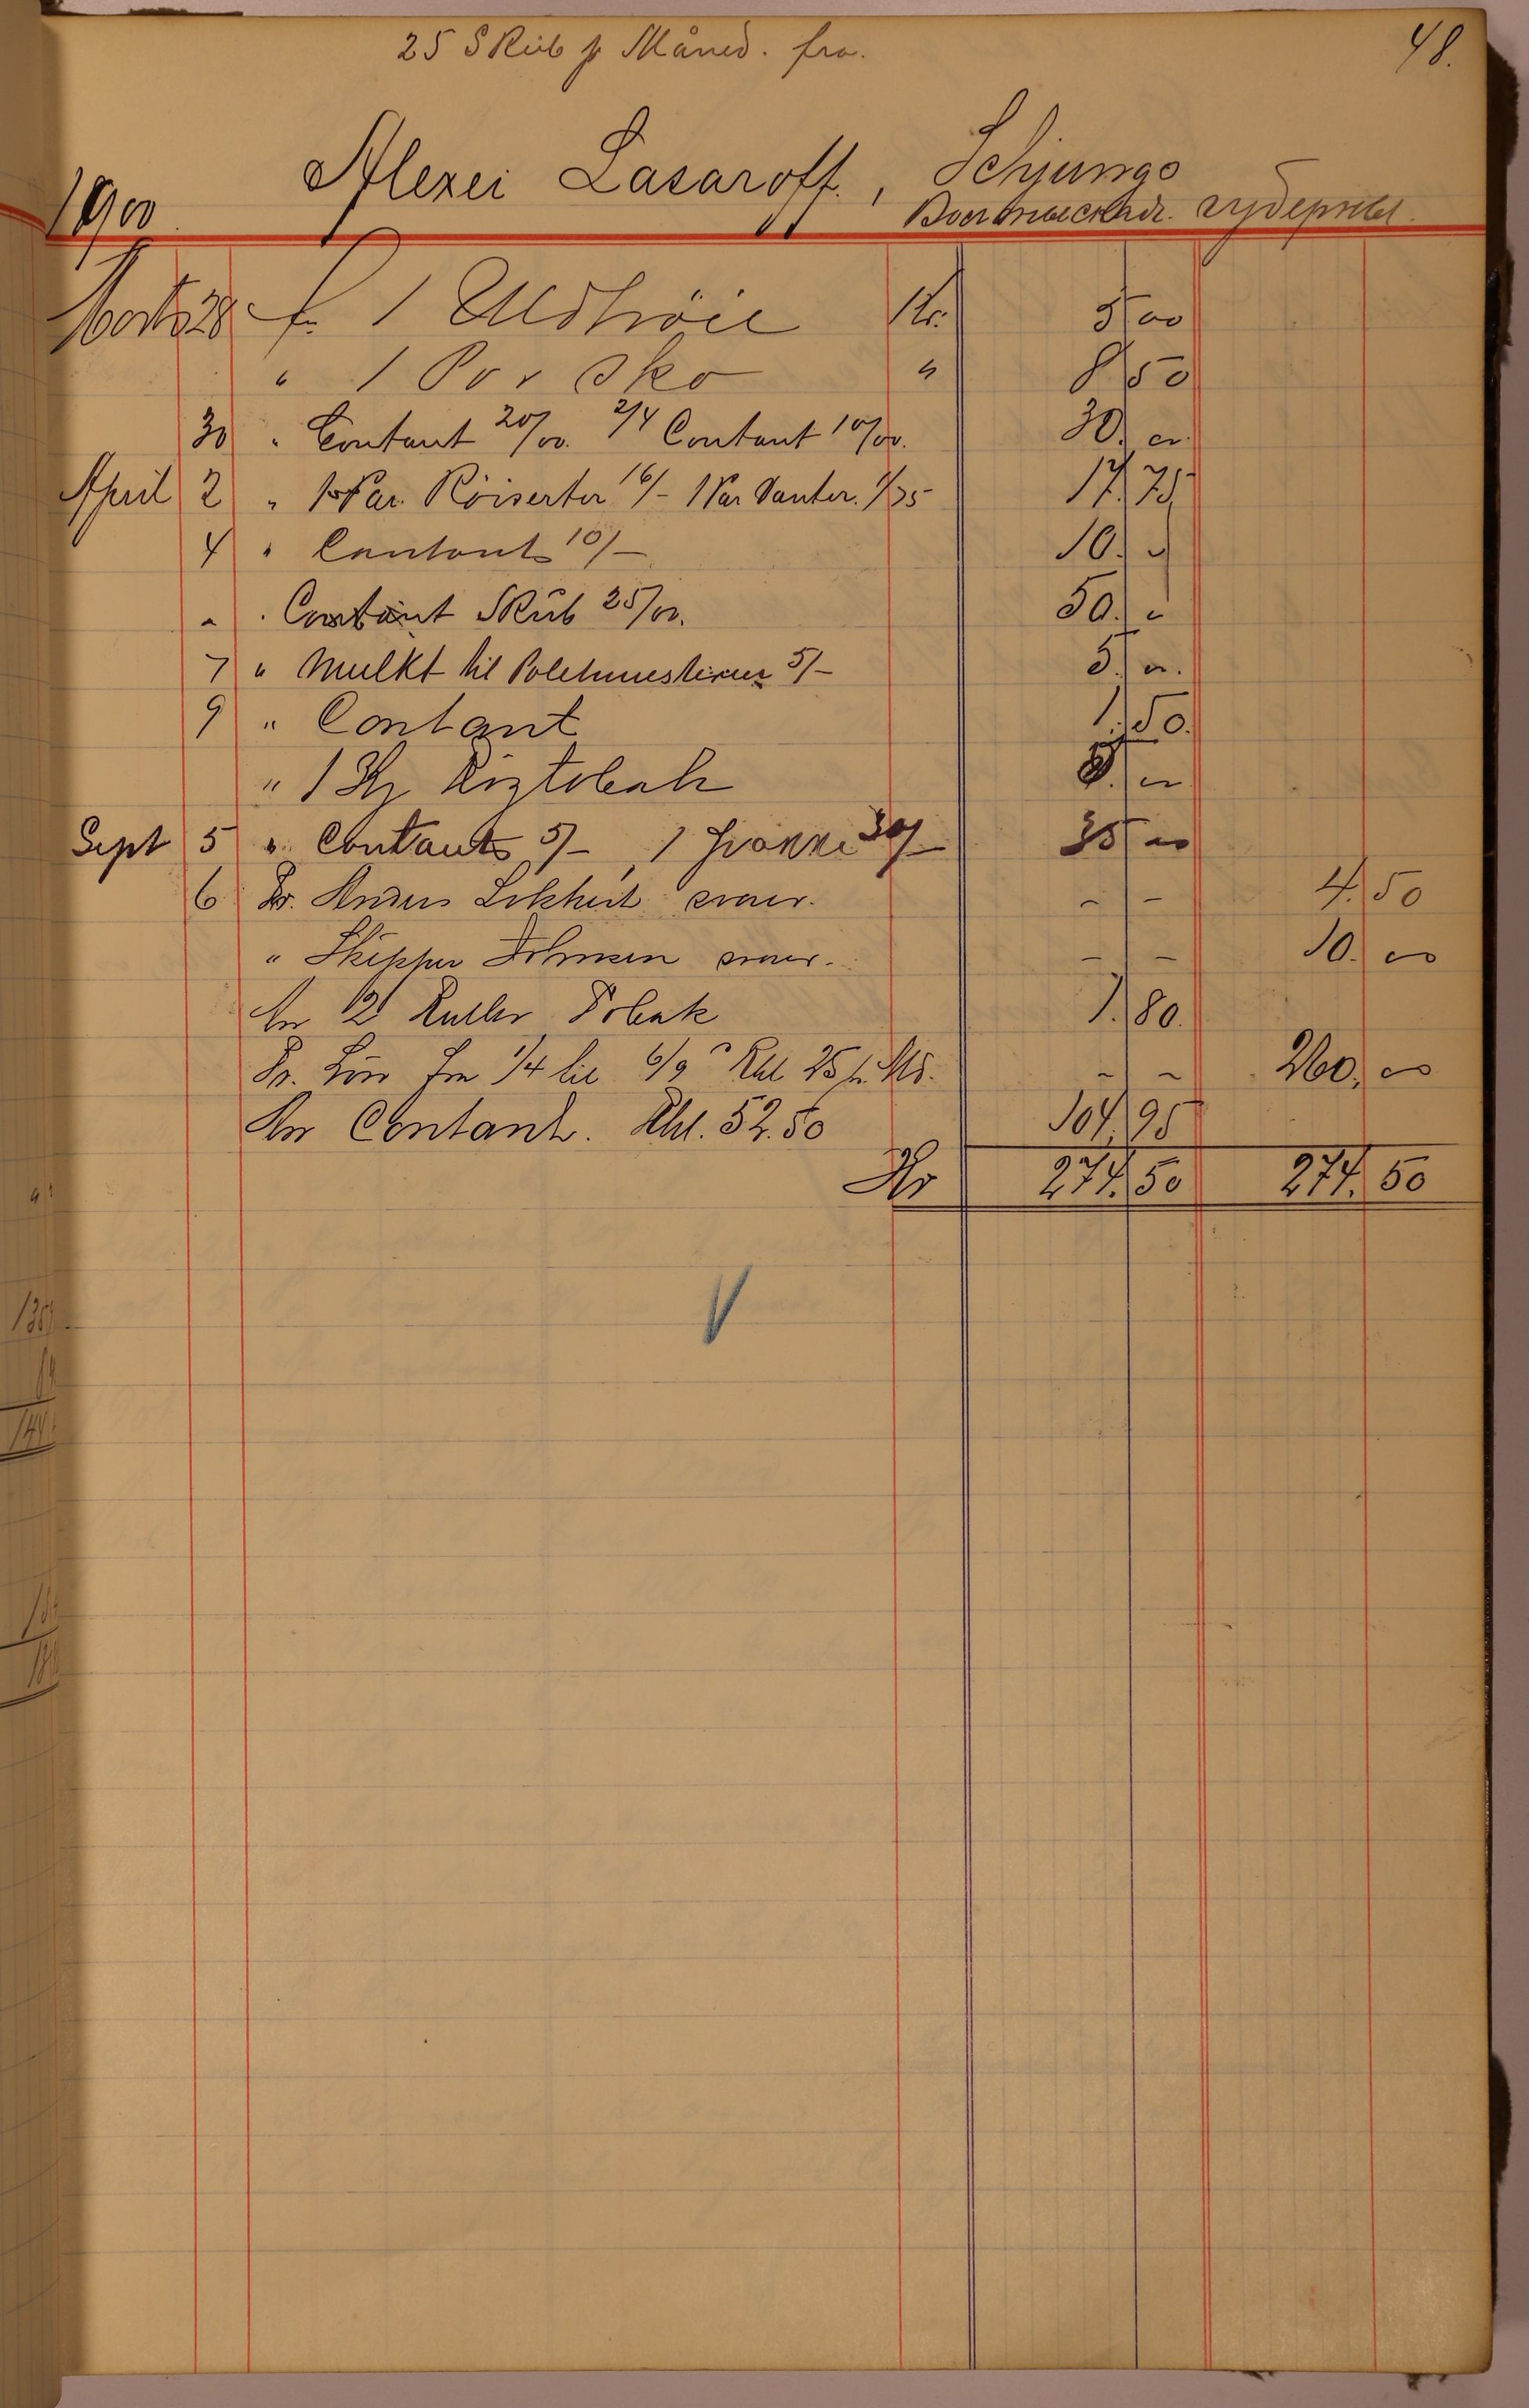 25 SRub pr Måned. fra.
48.
Alexei Lasaroff., Schjungo
1900
Marts 28 fr. 1 Uldtröie Kr. 5 00
" 1 Par Sko " 8 50
30 " Contant 20/00. 2/4 Contant 10/00. 30. "
April 2 " 1 Par Röiserter 16/- 1 Par Vanter. 1/75 17. 75
4 " Contant 10/- 10. "
" " Contant SRub 25/00. 50. "
7 " Mulkt til Politimesteren 5/- 5. "
9 " Contant 1. 50.
" 1 Kg
Sept 5 " Contant 5/-, 1 30/- 35 00
6 Pr. Anders - - 4. 50
" Skipper Johnsen - - 10. 00
An 2 Ruller Tobak 1. 80.
Pr. Lön fra 1/4 til 6/9 Rbl 25 pr. Md. - - 260. 00
An Contant. Rbl. 52.50 104. 95
Kr 274. 50 274. 50